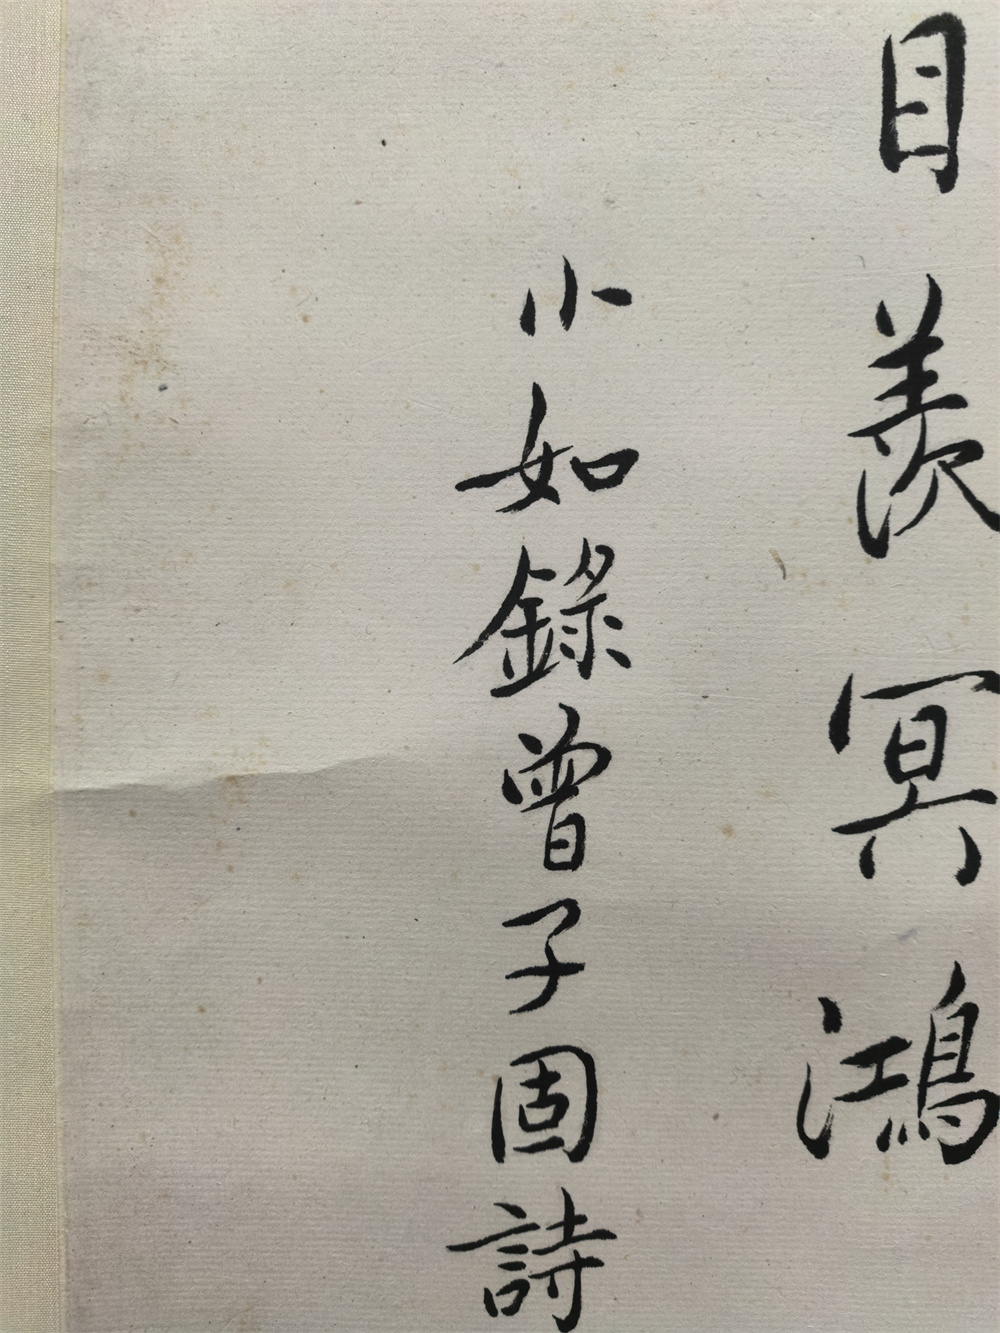 目羨冥鴻
小如錄曾子固詩